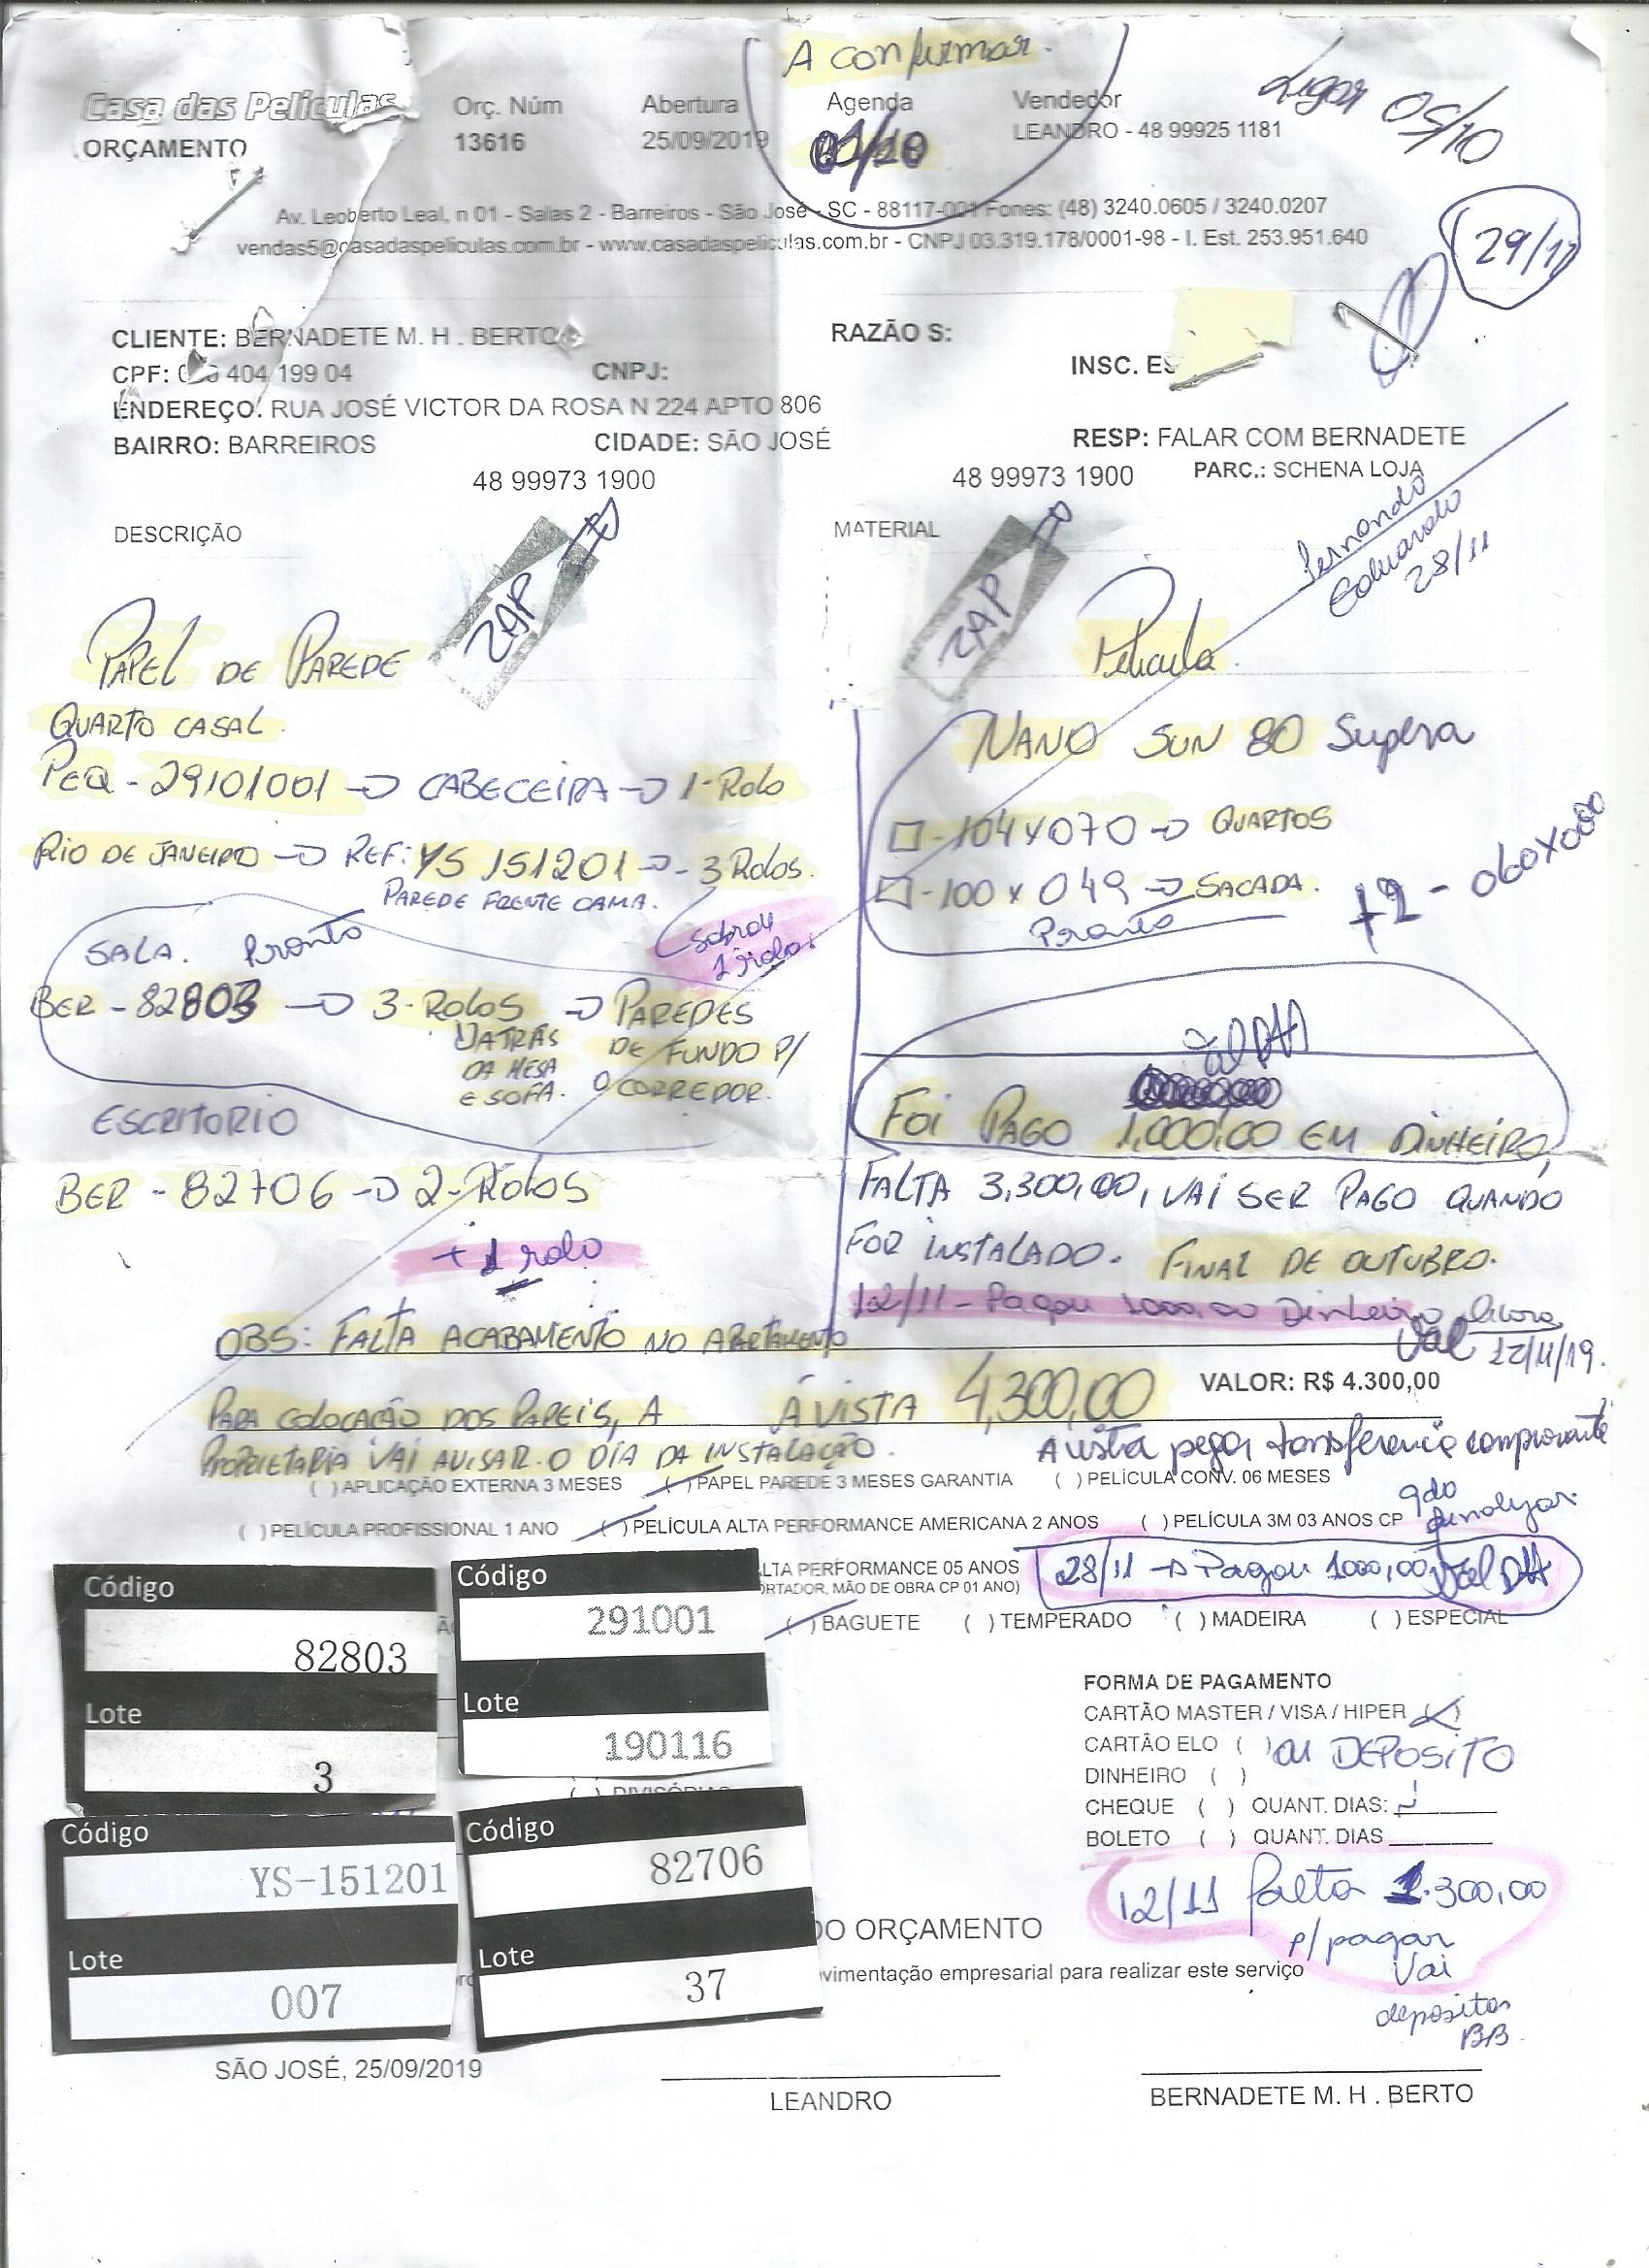 A confirmar.
Casa das Películas
ORÇAMENTO
Orç. Núm
13616
Abertura
25/09/2019
Agenda
Vendedor
LEANDRO - 48 99925 1181
Ligar 05/10
Av. Leoberto Leal, n 01 - Salas 2 - Barreiros - São José - SC - 88117-001 Fones: (48) 3240.0605 / 3240.0207
vendas5@casadaspeliculas.com.br - www.casadaspeliculas.com.br - CNPJ 03.319.178/0001-98 - I. Est. 253.951.640
29/11
CLIENTE: BERNADETE M. H . BERTO
RAZÃO S:
CPF: 404 199 04
CNPJ:
INSC. ES
ENDEREÇO: RUA JOSÉ VICTOR DA ROSA N 224 APTO 806
BAIRRO: BARREIROS
CIDADE: SÃO JOSÉ
RESP: FALAR COM BERNADETE
48 99973 1900
48 99973 1900
PARC.: SCHENA LOJA
DESCRIÇÃO
MATERIAL
Fernando
Eduardo
28/11
ZAP
ZAP
PAPEL DE PAREDE
QUARTO CASAL.
PEQ - 29101001 → CABECEIRA → 1-Rolo
RIO DE JANEIRO → REF: YS 151201 → - 3 Rolos.
PAREDE FRENTE CAMA.
sobrou
1 rolo.
SALA. Pronto
BER - 82803 → 3-ROLOS → PAREDES
DATRÁS DE FUNDO P/
DA MESA O CORREDOR.
E SOFA.
ESCRITORIO
BER - 82706 → 2-Rolos
+ 1 rolo
Pelicula.
NANO SUN 80 Supera
□ - 104 x 070 → QUARTOS
□ - 100 x 049 → SACADA.
Pronto
+2 - 060X080
FOI PAGO 1.000,00 EM DINHEIRO,
FALTA 3,300,00, VAI SER PAGO QUANDO
FOR INSTALADO. FINAL DE OUTUBRO.
12/11 - Pagou 1000,00 Dinheiro
Val 12/11/19.
OBS: FALTA ACABAMENTO NO APARTAMENTO
PARA COLOCAÇÃO DOS PAPEIS, A
PROPRIETARIA VAI AVISAR O DIA DA INSTALAÇÃO.
Á VISTA 4,300,00
VALOR: R$ 4.300,00
A vista pegar transferencia comprovante
qdo
finalizar.
( ) APLICAÇÃO EXTERNA 3 MESES ( ) PAPEL PAREDE 3 MESES GARANTIA ( ) PELÍCULA CONV. 06 MESES
( ) PELÍCULA PROFISSIONAL 1 ANO ( ) PELÍCULA ALTA PERFORMANCE AMERICANA 2 ANOS ( ) PELÍCULA 3M 03 ANOS CP
ALTA PERFORMANCE 05 ANOS
ORTADOR, MÃO DE OBRA CP 01 ANO)
28/11 → Pagou 1000,00
( ) BAGUETE ( ) TEMPERADO ( ) MADEIRA ( ) ESPECIAL
Código
82803
Lote
3
Código
291001
Lote
190116
Código
YS-151201
Lote
007
Código
82706
Lote
37
( ) DIVISÓRIAS
FORMA DE PAGAMENTO
CARTÃO MASTER / VISA / HIPER ( )
CARTÃO ELO ( ) ou DEPOSITO
DINHEIRO ( )
CHEQUE ( ) QUANT. DIAS:
BOLETO ( ) QUANT. DIAS
12/11 falta 1.300,00
p/ pagar
Vai
depositar
BB.
DO ORÇAMENTO
vimentação empresarial para realizar este serviço
SÃO JOSÉ, 25/09/2019
LEANDRO
BERNADETE M. H . BERTO